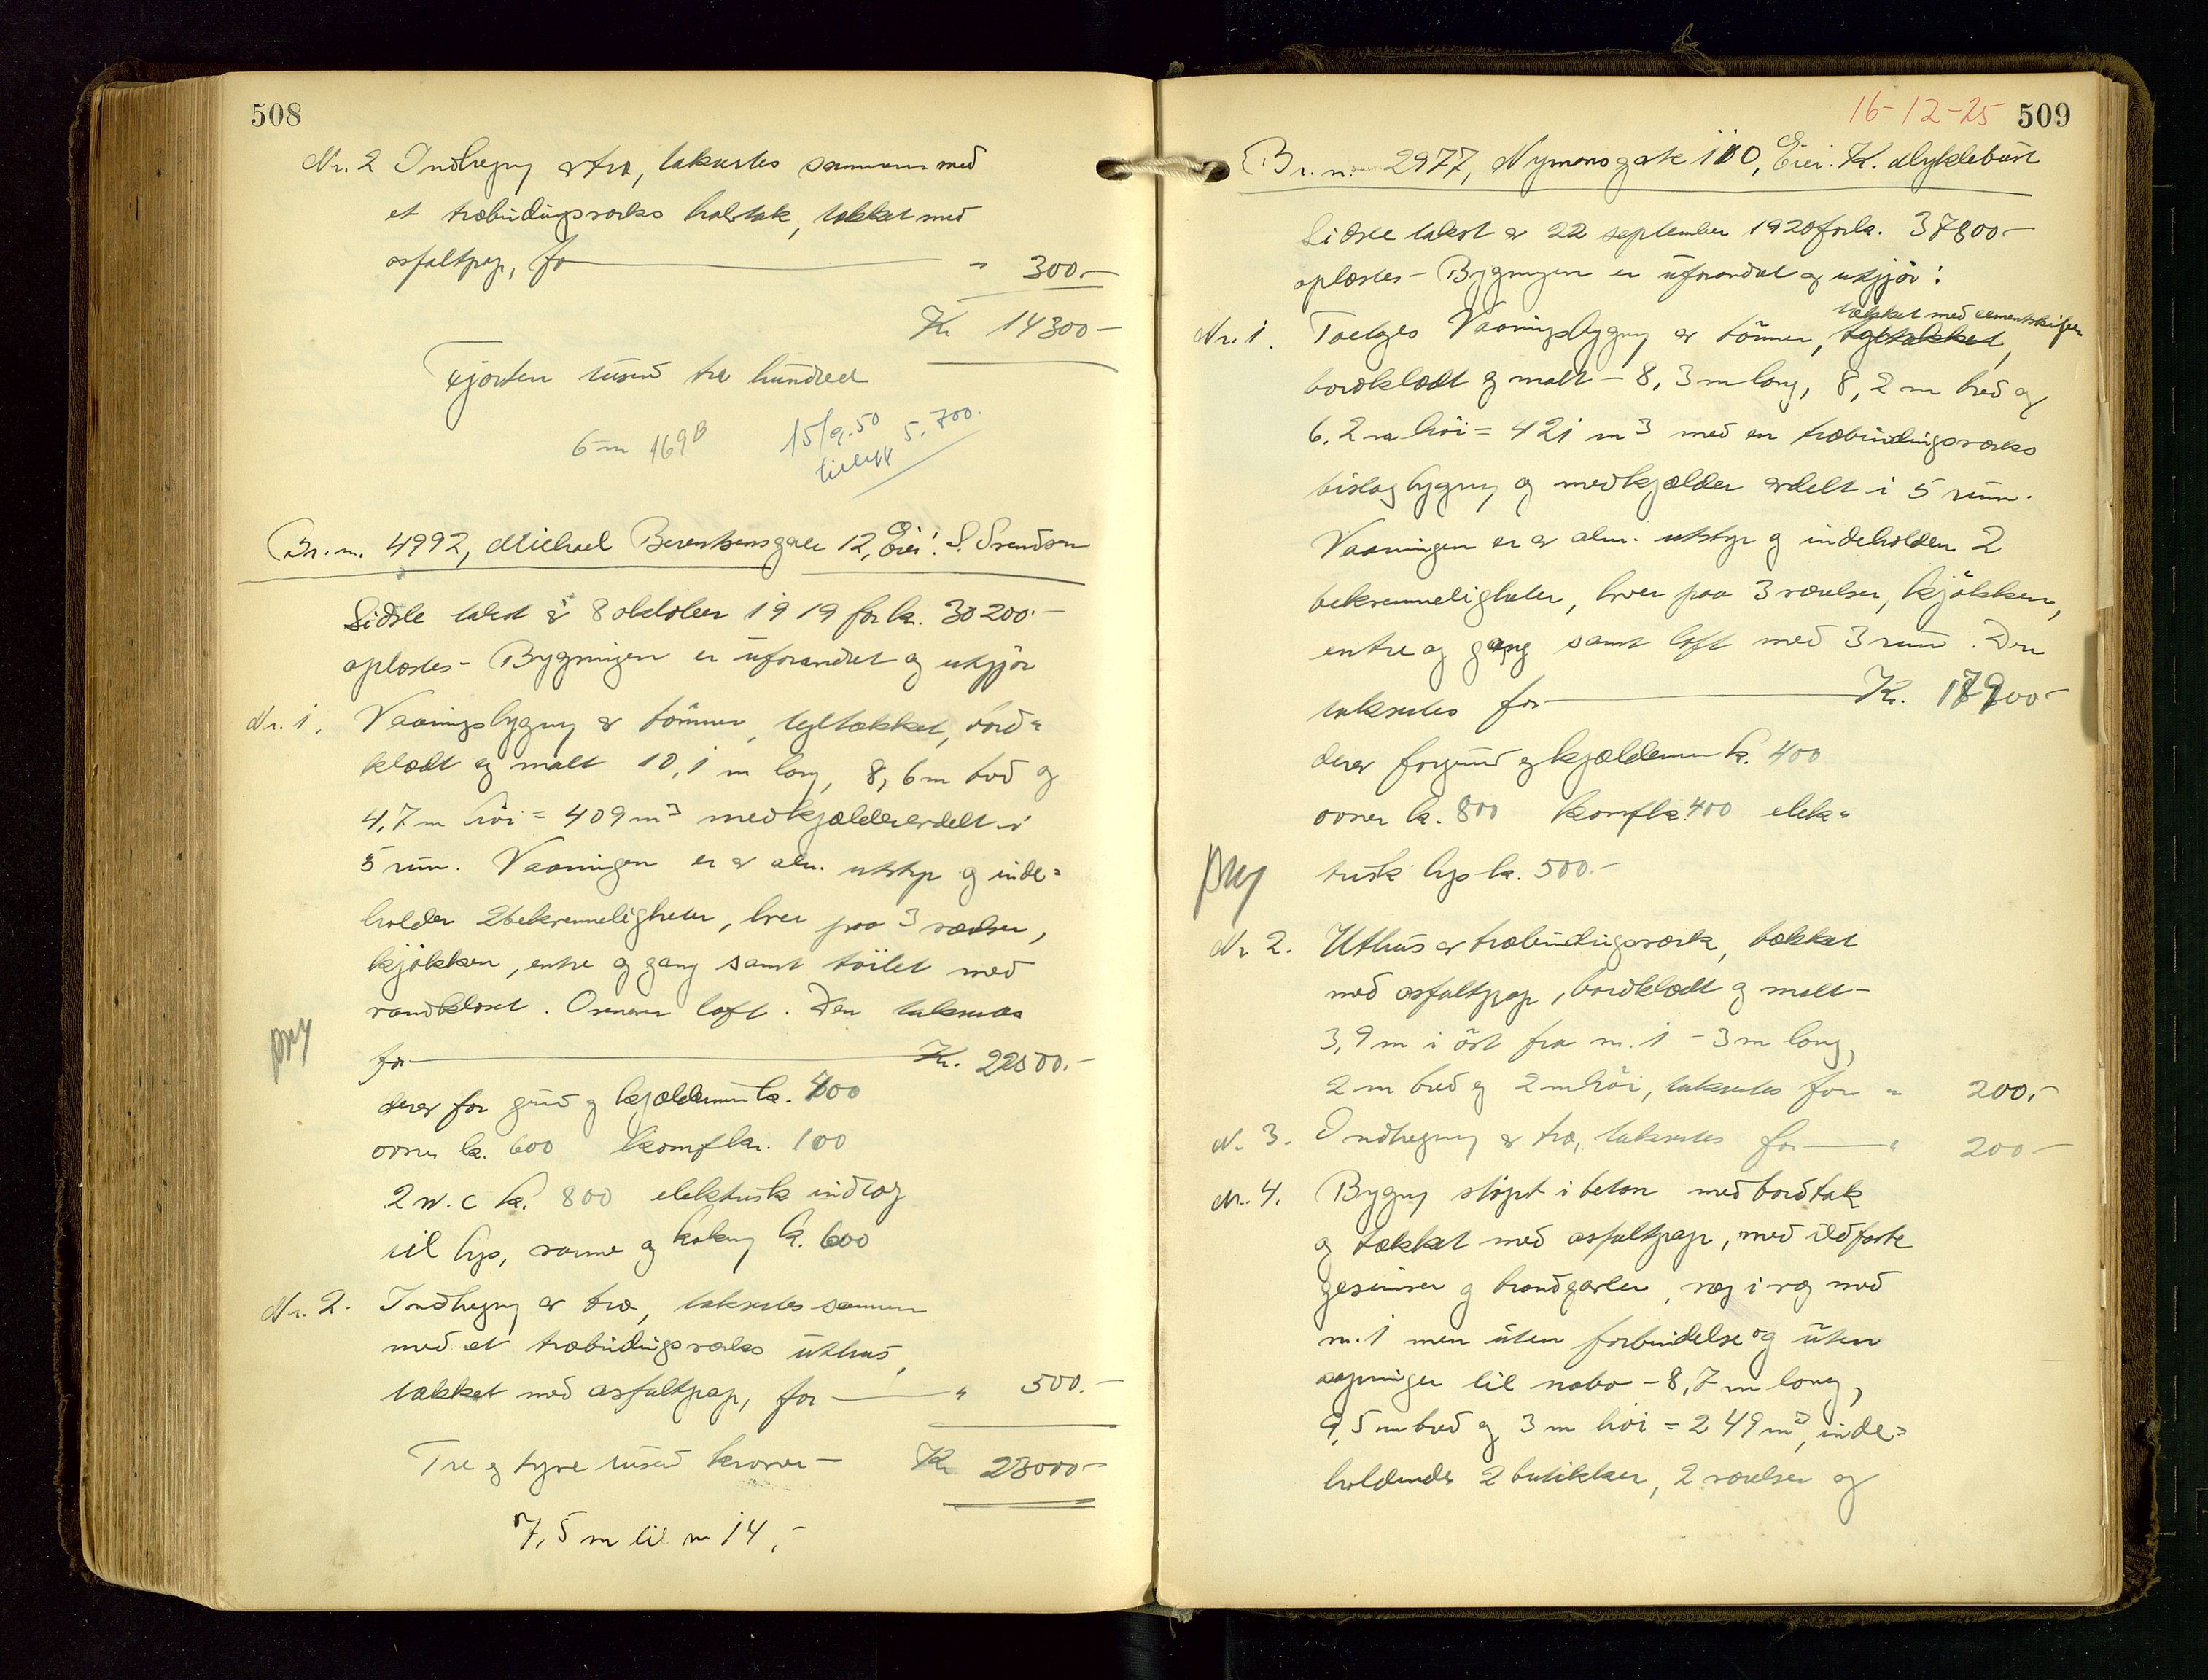 508
Nr. 2 Indhegning av træ, taksertes sammen med
et træbindingsverks halvtak, tækket med
asfaltpap, for " 300.-
Kr 14300-
Fjorten tusend tre hundred
6 m 169B
15/9-50
tillegg 5.700.
Br. nr. 4992, Michael Berentsensgate 12, Eier: S. Svendsen
Sidste takst av 8 oktober 1919 for kr. 30200.-
oplæstes - Bygningen er uforandret og utgjør
Nr. 1. Vaaningsbygning av tømmer, tegltækket, bord=
klædt og malt 10,1 m lang, 8,6 m bred og
4,7 m høi = 409 m3 med kjælder avdelt i
5 rum. Vaaningen er av alm. utstyr og inde=
holder 2 bekvemmeligheter, hver paa 3 værelser,
kjøkken, entre og gang samt toilet med
vandkloset. Ovenover loft. Den taksertes
for Kr. 22500.-
derav for grund og kjældermur kr. 400
ovner kr. 600 komf kr. 100
2 w.c kr. 800 elektrisk indlæg
til lys, varme og kokning kr. 600
Nr. 2. Indhegning av træ, taksertes sammen
med et træbindingsverks uthus,
tækket med asfaltpap, for " 500.-
Tre og tyve tusend kroner - Kr 23000-
7,5 m til nr 14,-
16-12-25 509
Br. nr. 2977, Nymansgate 110, Eier: K. Myklebust
Sidste takst av 22 september 1920 for kr. 37800-
oplæstes - Bygningen er uforandret og utgjør:
tækket med cementskifer
Nr. 1. Toetages Vaaningsbygning av tømmer, tegltækket,
bordklædt og malt - 8,3 m lang, 8,2 m bred og
6,2 m høi = 421 m3 med en træbindingsverks
bislagbygning og med kjælder avdelt i 5 rum.
Vaaningen er av alm. utstyr og indeholder 2
bekvemmeligheter, hver paa 3 værelser, kjøkken,
entre og gang samt loft med 3 rum. Den
taksertes for Kr. 17900-
derav for grund og kjældermur kr. 400
ovner kr. 800 komf kr. 400 elek=
trisk lys kr. 500.-
Nr 2. Uthus av træbindingsverk, tækket
med asfaltpap, bordklædt og malt -
3,9 m i øst fra nr. 1 - 3 m lang,
2 m bred og 2 m høi, taksertes for " 200.-
Nr. 3. Indhegning av træ, taksertes for " 200-
Nr. 4. Bygning støpt i beton med bordtak
og tækket med asfaltpap, med ildfaste
gesimser og brandgavler, væg i væg med
nr. 1 men uten forbindelse og uten
aapninger til nabo - 8,7 m lang,
9,5 m bred og 3 m høi = 249 m3, inde=
holdende 2 butikker, 2 værelser og